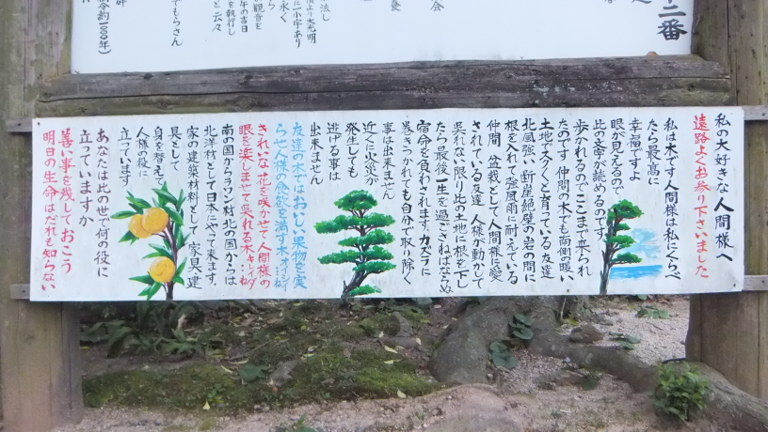 十二番
私の大好きな人間様へ
遠路よくお参り下さいました
私は木です人間様は私にくらべ
たら最高に
幸福ですよ
眼が見えるので
此の文章が読めるのです
歩かれるのでここまで来られ
たのです 仲間の木でも南側の暖い
土地ですくすくと育っている友達
北風強い断崖絶壁の岩の間に
根を入れて強風雨に耐えている
仲間 盆栽として人間様に愛
されている友達 人様が動かして
呉れない限り此の土地に根を下し
たら最後一生を過ごさねばならぬ
宿命を負わされます。カズラに
巻きつかれても自分で取り除く
事は出来ません
近くに火災が
発生しても
逃げる事は
出来ません
友達の木ではおいしい果物を実
らせ人様の食欲を満す木
きれいな花を咲かせて人間様の
眼を楽しませて呉れる
南の国からラワン材北の国からは
北洋材として日本にやって来ます。
家の建築材料として 家具建
具として
身を替えて
人様の役に
立っています
あなたは此の世で何の役に
立っていますか
善い事を残しておこう
明日の生命はだれも知らない